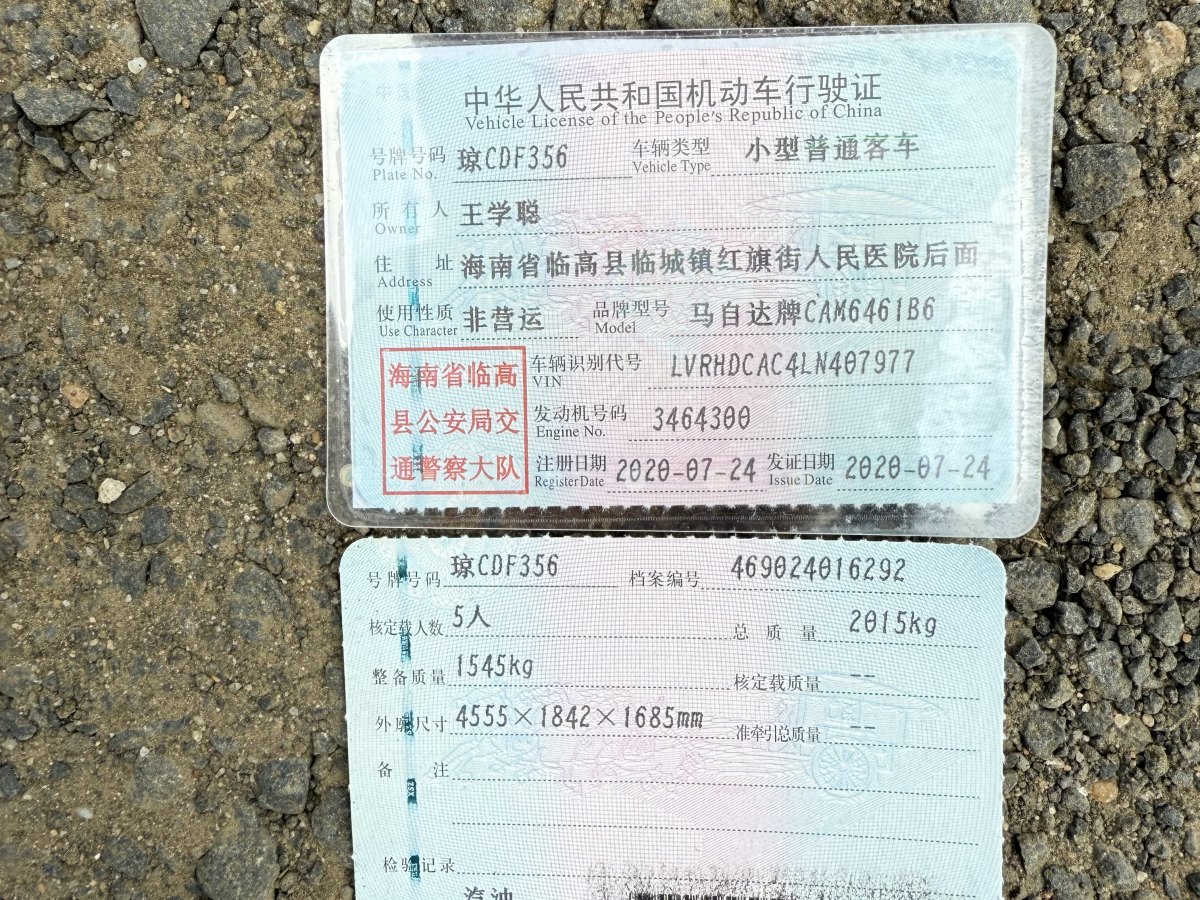 中华人民共和国机动车行驶证
Vehicle License of the People's Republic of China
号牌号码 琼CDF356 车辆类型 小型普通客车
Plate No. Vehicle Type
所有人 王学聪
Owner
住址 海南省临高县临城镇红旗街人民医院后面
Address
使用性质 非营运 品牌型号 马自达牌CAM6461B6
Use Character Model
海南省临高
县公安局交
通警察大队
车辆识别代号 LVRHDCAC4LN407977
VIN
发动机号码 3464300
Engine No.
注册日期 2020-07-24 发证日期 2020-07-24
Register Date Issue Date
号牌号码 琼CDF356 档案编号 469024016292
核定载人数 5人 总质量 2015kg
整备质量 1545kg 核定载质量 --
外廓尺寸 4555×1842×1685mm 准牵引总质量 --
备注
检验记录
汽油